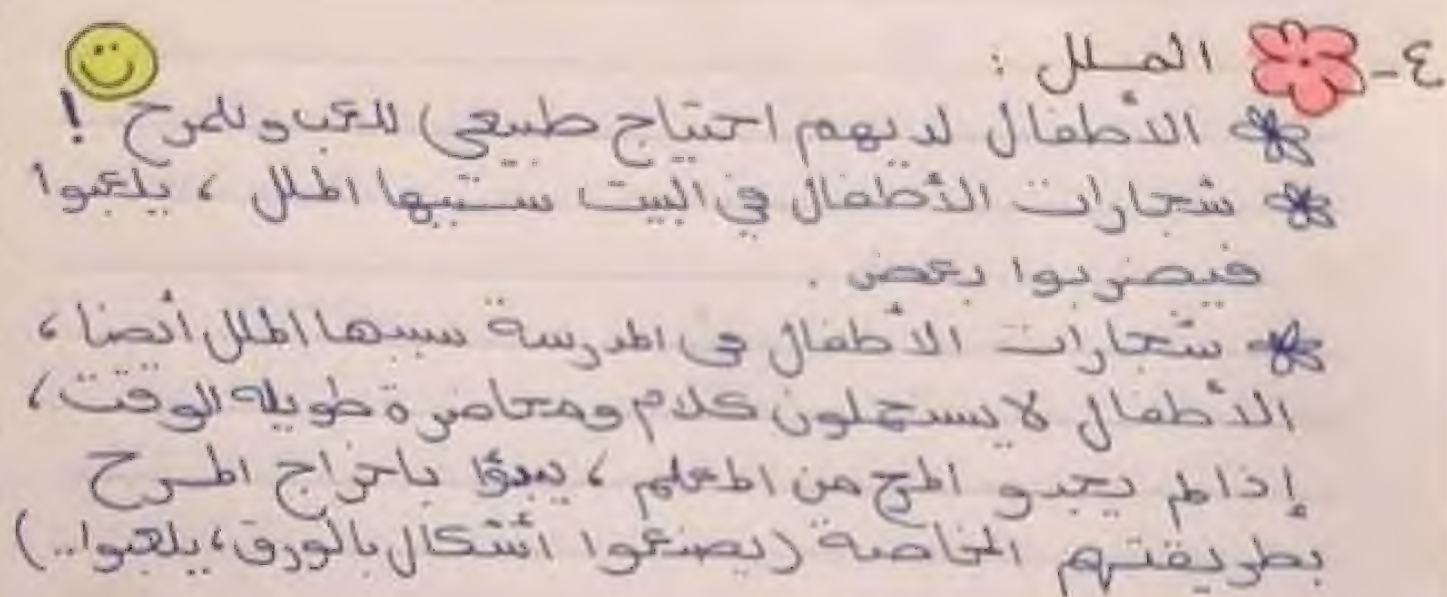 ٤- الملل :
الأطفال لديهم احتياج طبيعي للعب وللمرح !
شجارات الأطفال في البيت سببها الملل ، يلعبوا
فيضربوا بعض .
شجارات الأطفال في المدرسة سببها الملل أيضا ،
الأطفال لا يستحملون كلام ومحاضرة طويلة الوقت ،
إذا لم يجدو المرح من المعلم ، يبدؤا باخراج المرح
بطريقتهم الخاصة (يصنعوا أشكال بالورق ، يلعبوا..)